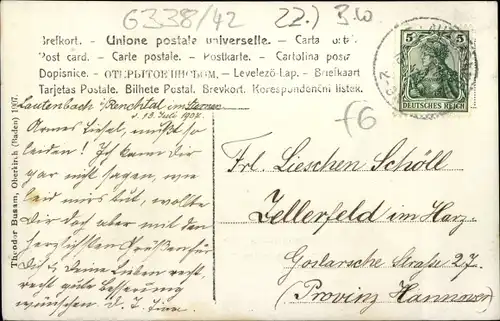 G338/42 22.) 3.00
Brefkort. - Unione postale universelle. - Carta postal.
Post card. - Carte postale. - Postkarte. - Cartolina postale
Dopisnice. - ОТКРЫТОЕ ПИСЬМО. - Levelező-Lap. - Briefkaart
Tarjetas Postale. Bilhete Postal. Brevkort. Korespondenční listek.
5 5
DEUTSCHES REICH
f6
Lautenbach Renchtal im
d. 13. Juli 1907.
Armes Liesel, mußt so
leiden! Ich kann Dir
gar nicht sagen, wie
leid mir's tut, wollte
Dir doch aber mit den
herzlichsten Grüßen für
Dich & Deine Lieben recht,
recht gute Besserung
wünschen. D. l.
Theodor Bussam, Oberkirch (Baden) 1907.
Frl. Lieschen Schöll
Zellerfeld im Harz.
Goslarsche Straße 27.
(Provinz Hannover)